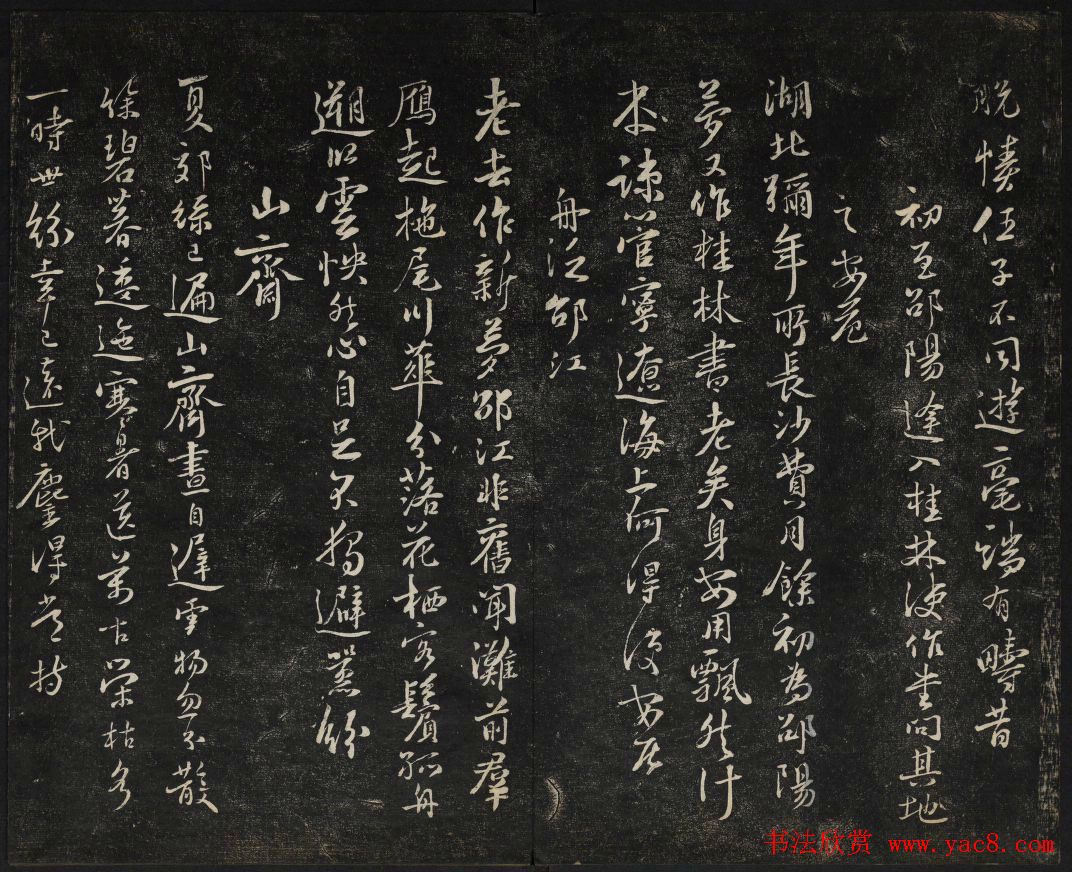 脫憒伍子不同遊毫端有疇昔
初至邵陽逢入桂林使作書問其地
之安危
湖北彌年所長沙費月餘初為邵陽
夢又作桂林書老矣身安用飄然計
本疎管寧遼海上何得便安居
舟泛邵江
老去作新夢邵江非舊聞灘前羣
鴈起柂尾川華分落花栖客鬢孤舟
遡歸雲快然心自足不獨避嚻紛
山齋
夏郊綠已遍山齋晝自遲雲物忽分散
餘碧暮逶迤寒暑送萬古榮枯各
一時世紛幸已遠我麈得常持
书法欣赏 www.yac8.com